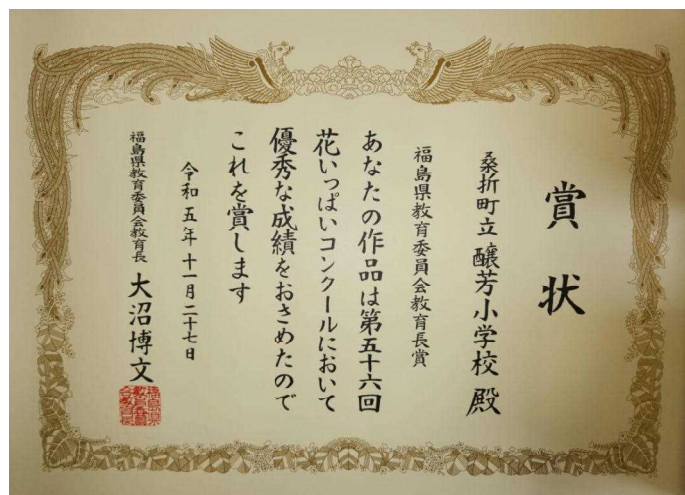 賞状
桑折町立醸芳小学校 殿
福島県教育委員会教育長賞
あなたの作品は第五十六回
花いっぱいコンクールにおいて
優秀な成績をおさめたので
これを賞します
令和五年十一月二十七日
福島県教育委員会教育長 大沼博文